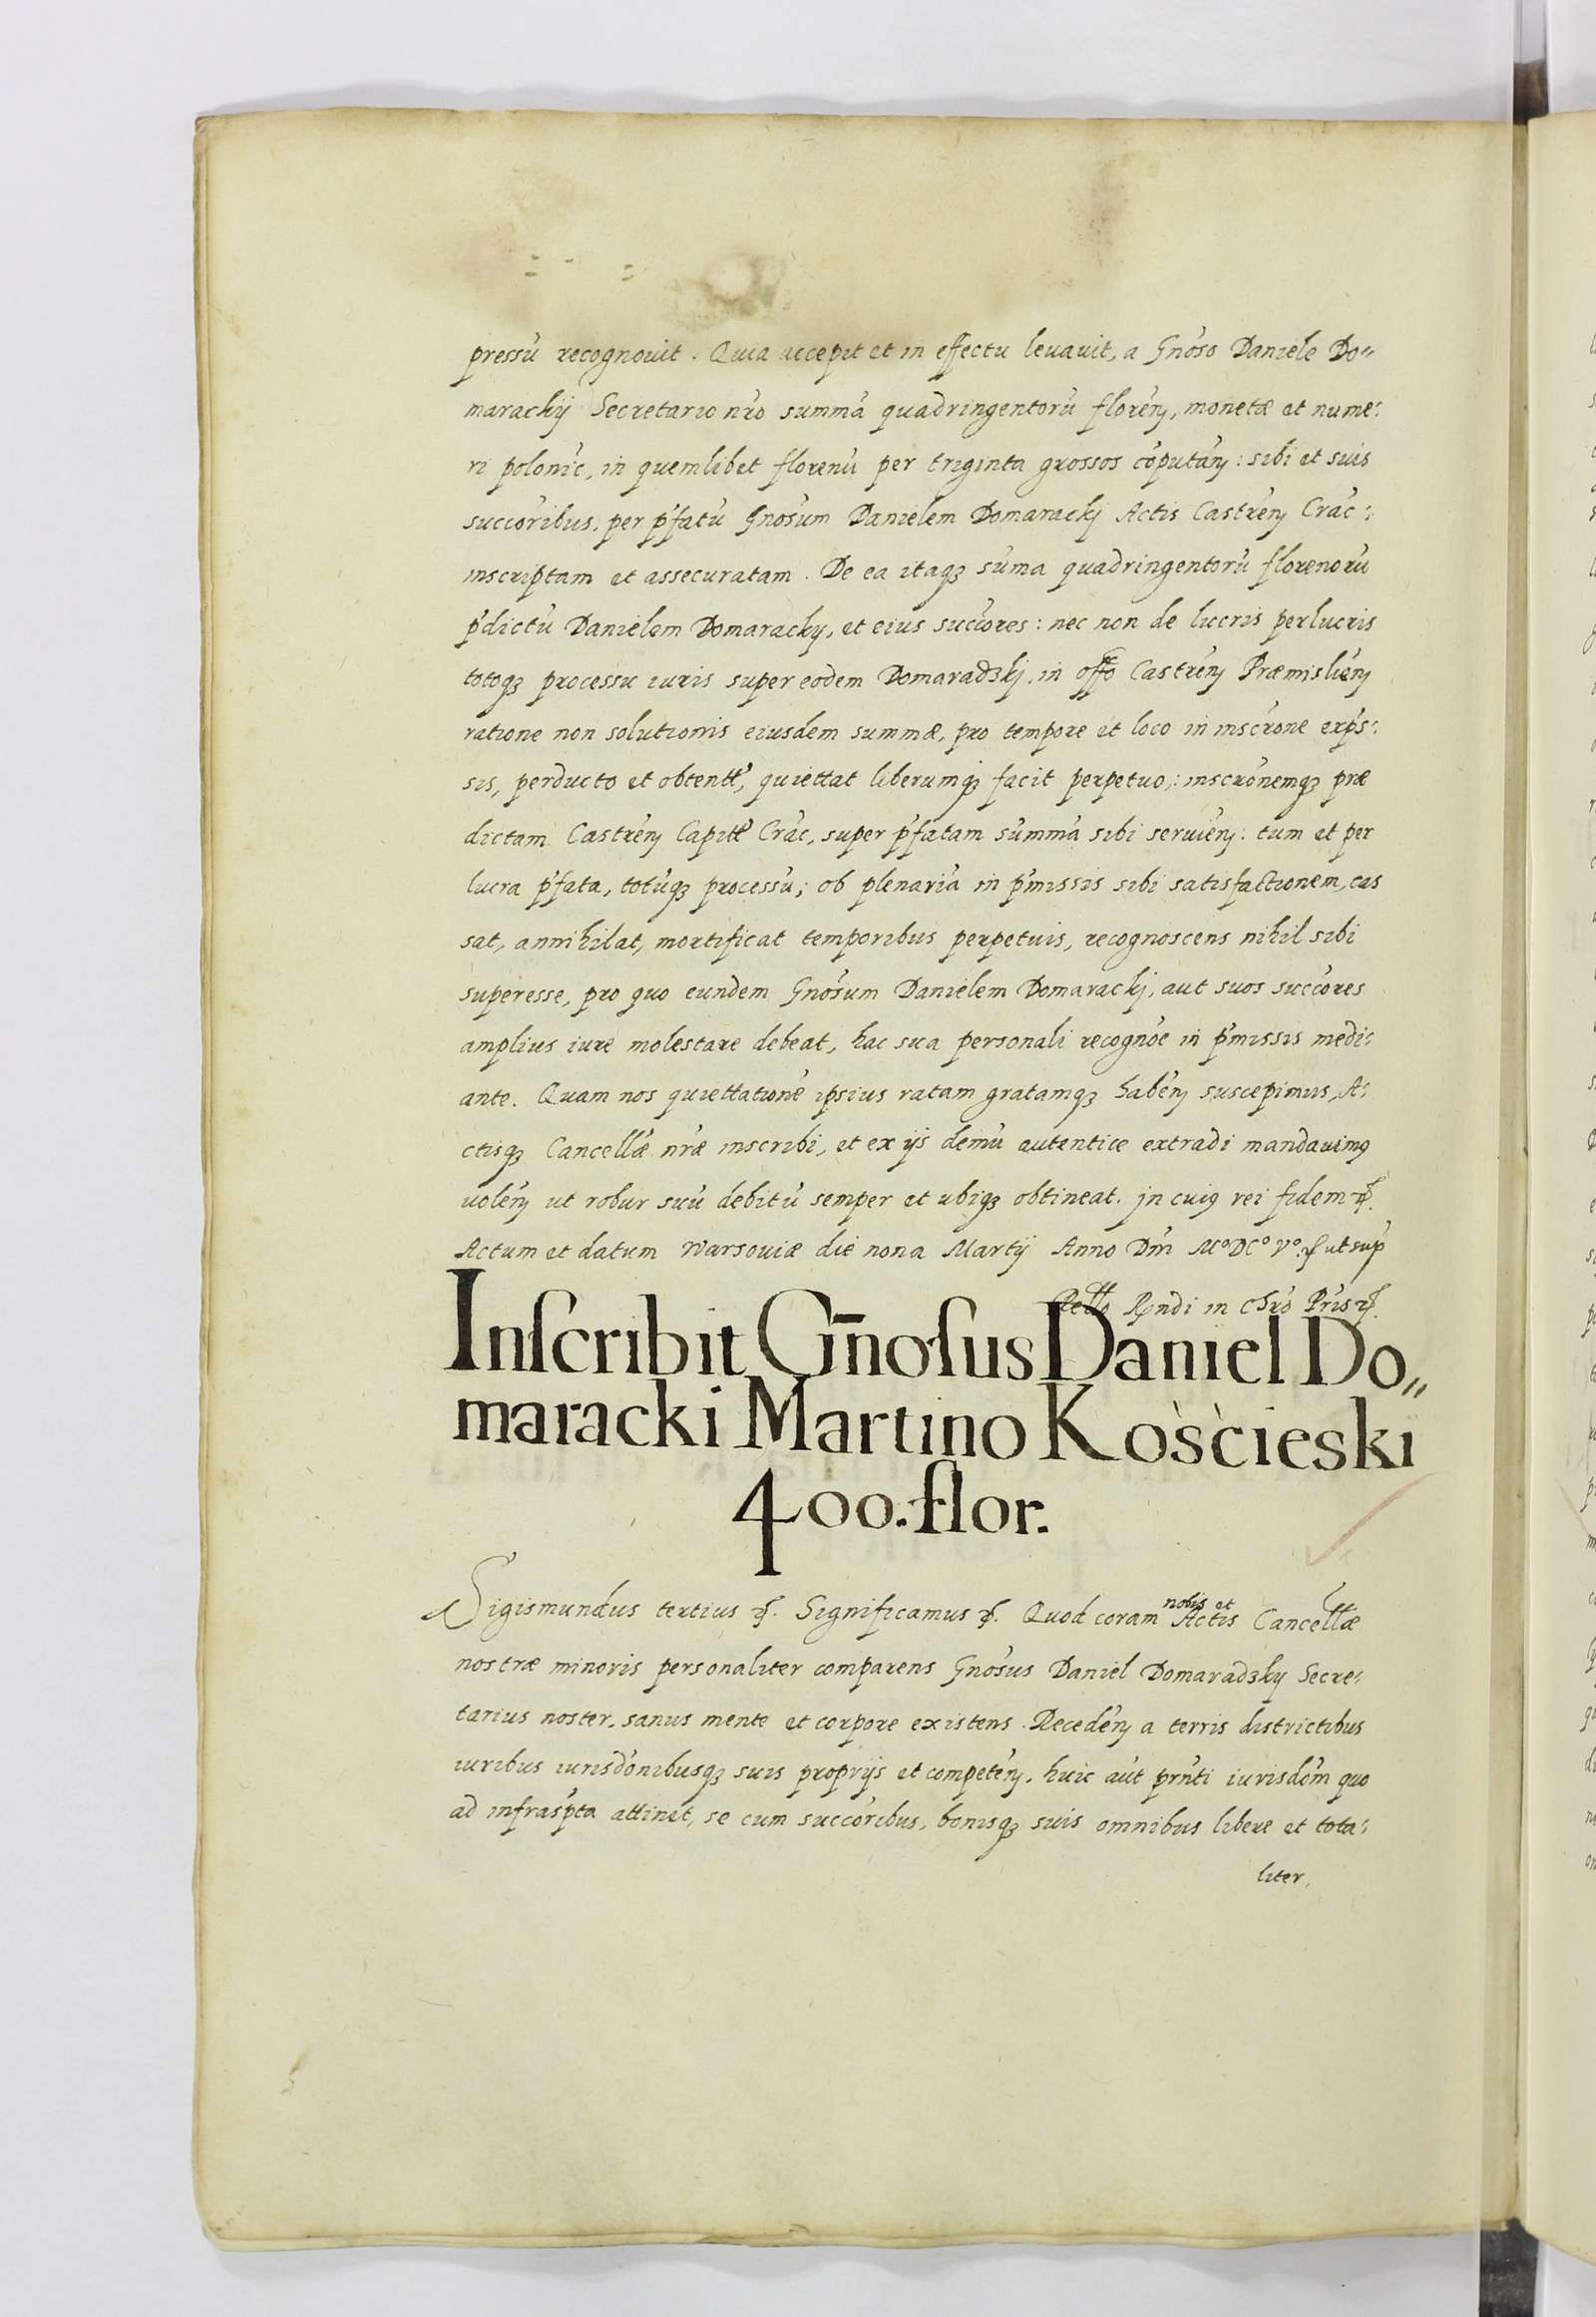 pressú recognovit. Quia accepit et in effectu levavit, a Gnóso Daniele Do„
marackij Secretario nro summá quadringentorú florén, monetæ et nume:
ri polonic, in quemlibet florenú per triginta grossos cópután: sibi et suis
succoribus, per pfatú Gnosum Danielem Domaracki Actis Castrén Crac:
inscriptam et assecuratam. De ea itaqꝫ súma quadringentorú florenorú
pdictú Danielem Domaracky, et eius succores: nec non de lucris perlucris
totoqꝫ processu iuris super eodem Domaradzkj, in offo Castrén Præmislién
ratione non solutionis eiusdem summæ, pro tempore et loco in inscrone exps:
sis, perducto et obtentt, quiettat liberumqꝫ facit perpetuo: inscronemqꝫ præ
dictam Castrén Capitt Crac, super pfatam summá sibi servién: tum et per
lucra pfata, totúqꝫ processú; ob plenariá in pmissis sibi satisfactionem, cas
sat, annihilat, mortificat temporibus perpetuis, recognoscens nihil sibi
superesse, pro quo eundem Gnosum Danielem Domarackj, aut suos succores
amplius iure molestare debeat, hac sua personali recognoe in pmissis medi:
ante. Quam nos quiettationé ipsius ratam gratamqꝫ habén suscepimus, A:
ctisqꝫ Cancellæ nræ inscribi, et ex ijs demú autentice extradi mandavimꝯ
volén ut robur suú debitú semper et ubiqꝫ obtineat. Jn cuiꝯ rei fidem ꝛc.
Actum et datum Warsoviæ die nona Martij Anno Dni M°DC°V°. ꝛc ut sup
Relló Rndi in Chró Pris ꝛc.
Inſcribit Gn̄oſus Daniel Do„
maracki Martino Kośćieski
400. flor.
Sigismundus tertius ꝛc. Significamus ꝛc. Quod coram nobis et Actis Cancellæ
nostræ minoris personaliter comparens Gnosus Daniel Domaradzky Secre:
tarius noster, sanus mente et corpore existens. Recedén a terris districtibus
iuribus iurisdonibusqꝫ suis proprijs et competén, huic aut prnti iurisdom quo
ad infraspta attinet, se cum succoribus, bonisqꝫ suis omnibus libere et tota:
liter,